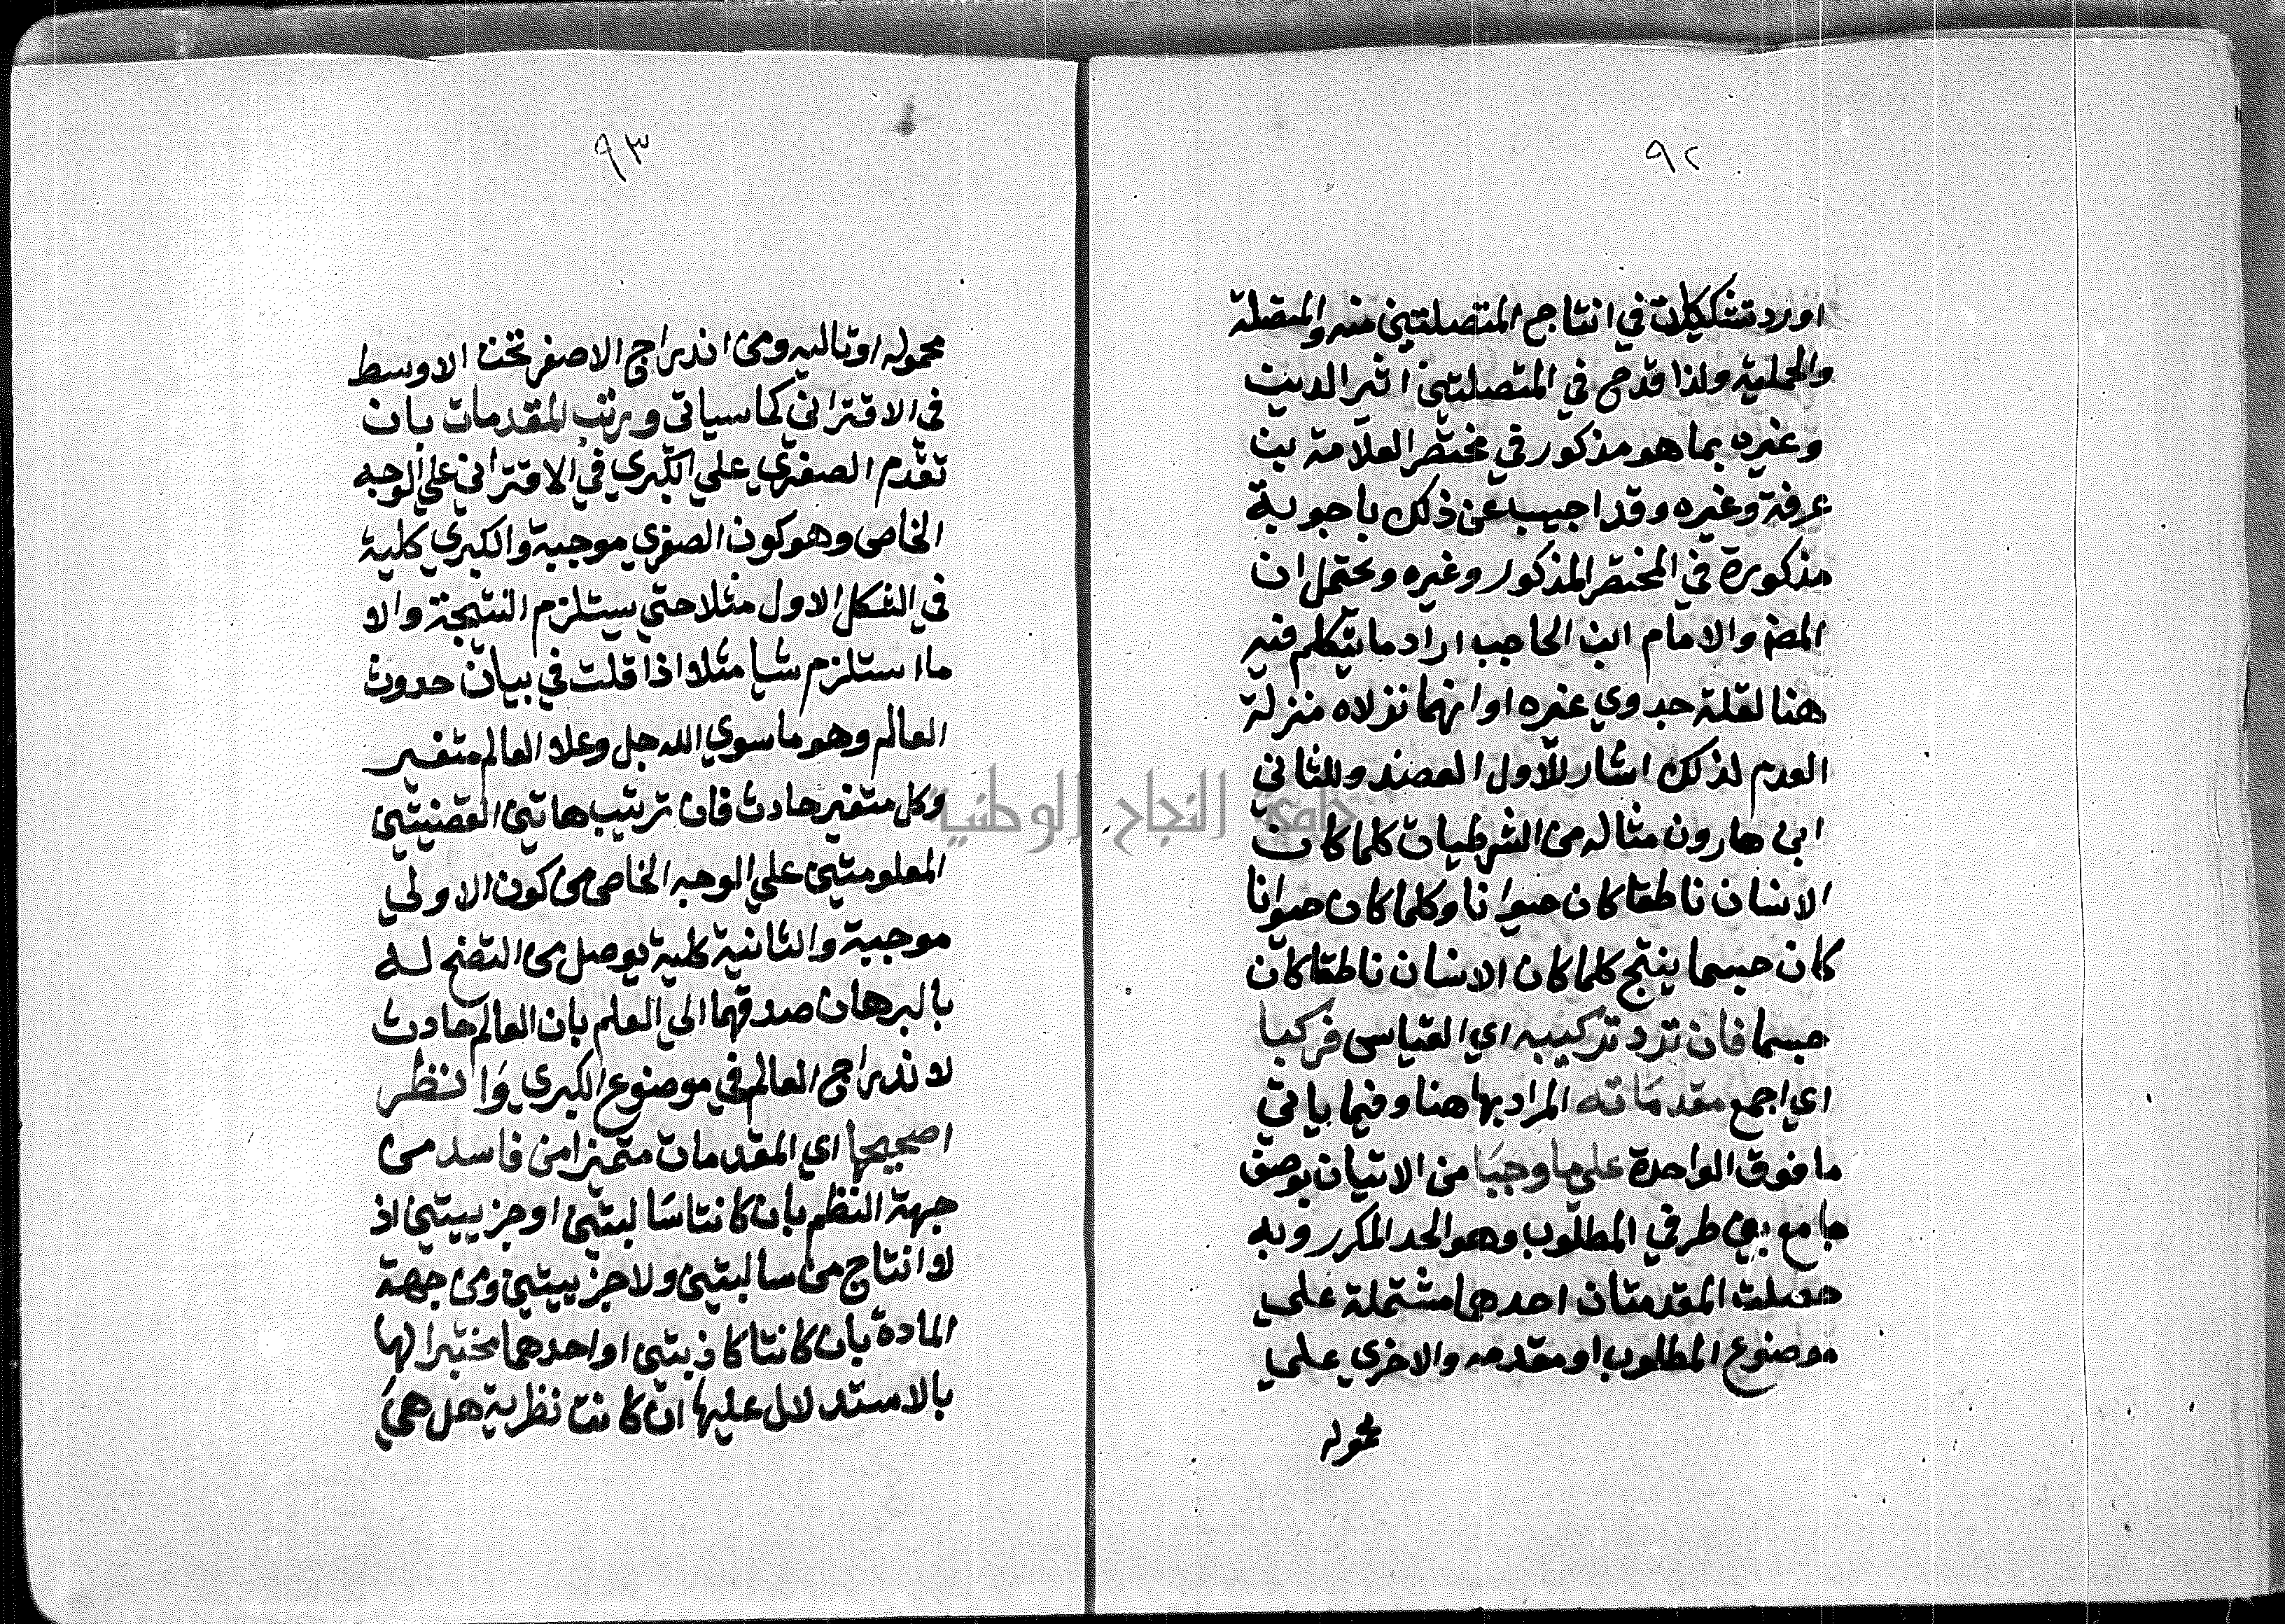 ٩٢
اورد تشكيكات في انتاج المتصلتين منه والمتصلة
والحملية ولذا قدح في المتصلتين اثير الدين
وغيره بما هو مذكور في مختصر العلامة بن
عرفة وغيره وقد اجيب عن ذلك باجوبة
مذكورة في المختصر المذكور وغيره ويحتمل ان
المص والامام ابن الحاجب اراد ما يتكلم فيه
هنا لقلة جدوي غيره او انهما نزلاه منزلة
العدم لذلك اشار للاول العضد وللثاني
ابن هارون مثاله من الشرطيات كلما كان
الانسان ناطقا كان حيوانا وكلما كان حيوانا
كان جسما ينتج كلما كان الانسان ناطقا كان
جسما فان ترد تركيبه اي القياس فركبا
اي اجمع مقدماته المراد بها هنا وفيما ياتي
ما فوق الواحدة علي ما وجبا من الاتيان بوصف
جامع بين طرفي المطلوب وهو الحد المكرر وبه
حصلت المقدمتان احدهما مشتملة علي
موضوع المطلوب او مقدمه والاخري علي
محموله
٩٣
محموله او تاليه ومن اندراج الاصغر تحت الاوسط
في الاقتراني كما سياتي ورتب المقدمات بان
تقدم الصغري علي الكبري في الاقتراني علي الوجه
الخاص وهو كون الصغري موجبة والكبري كلية
في الشكل الاول مثلا حتي يستلزم النتيجة والا
ما استلزم شيا مثلا اذا قلت في بيان حدوث
العالم وهو ما سوي الله جل وعلا العالم متغير
وكل متغير حادث فان ترتيب هاتين القضيتين
المعلومتين علي الوجه الخاص من كون الاولي
موجبة والثانية كلية يوصل من اتضح له
بالبرهان صدقهما الي العلم بان العالم حادث
لاندراج العالم في موضوع الكبري وَانظر
صحيحها اي المقدمات متميزا من فاسد من
جهة النظم بان كانتا سَالبتين او جزييتين اذ
لا انتاج من سالبتين ولا جزييتين ومن جهة
المادة بان كانتا كاذبتين او احدهما مختبرا لها
بالاستدلال عليها ان كانت نظرية هل هي
جامعة النجاح الوطنية